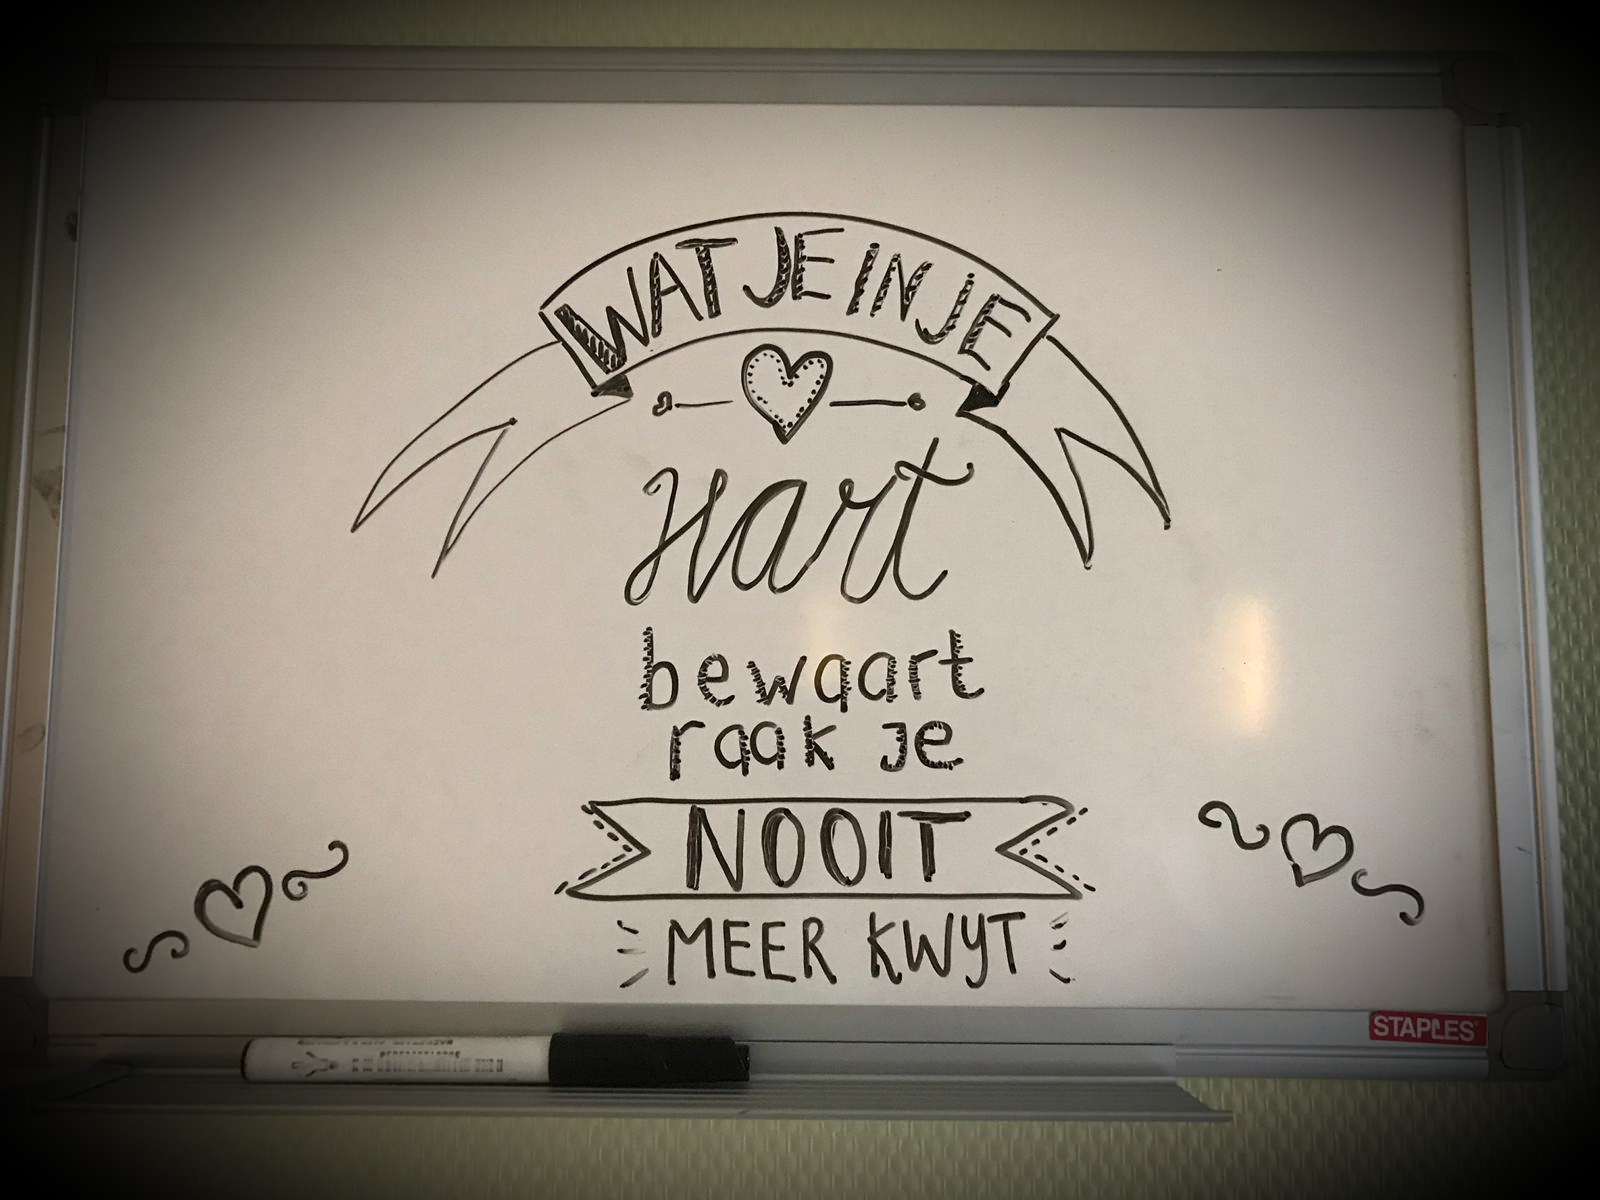 WAT JE IN JE
Hart
bewaart
raak je
NOOIT
MEER KWYT
STAPLES